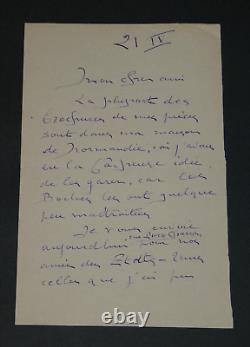 21 IV
Mon cher ami
La plupart des
brochures de mes pièces
sont dans ma maison
de Normandie, où j'avais
eu la fâcheuse idée
de les garer, car les
Boches les ont quelque
peu maltraitées
Je vous envoie
aujourd'hui pour nos
amis des Etats-Unis
celles que j'ai pu